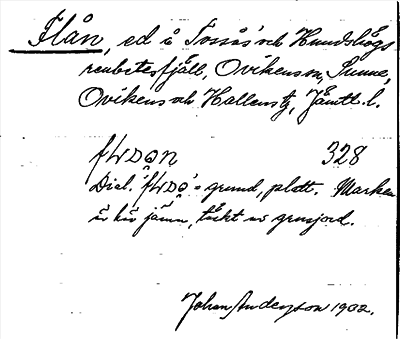 Flån, ed å Tossås' och Hundshögs
renbetesfjäll, Ovikens sn, Sunne,
Ovikens och Hallens tg, Jämtl. l.
328
Dial. = grund, platt. Marken
är här jämn, täckt av grusjord.
Johan Anderson 1902.